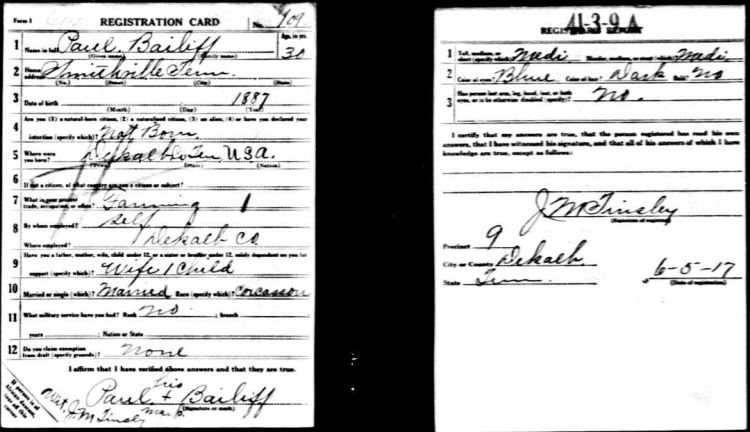 Form 1 REGISTRATION CARD No. 109
1 Name in full Paul Bailiff Age, in yrs. 30
(Given name) (Family name)
2 Home address Smithville Tenn.
(No.) (Street) (City) (State)
3 Date of birth 1887
(Month) (Day) (Year)
4 Are you (1) a natural-born citizen, (2) a naturalized citizen, (3) an alien, (4) or have you declared your
intention (specify which)? Nat Born
5 Where were you born? Dekalb Co Ten, U.S.A.
(Town) (State) (Nation)
6 If not a citizen, of what country are you a citizen or subject?
7 What is your present trade, occupation, or office? Farming 1
8 By whom employed? self
Where employed? Dekalb Co
9 Have you a father, mother, wife, child under 12, or a sister or brother under 12, solely dependent on you for
support (specify which)? Wife 1 Child
10 Married or single (which)? Married Race (specify which)? Corcasson
11 What military service have you had? Rank No ; branch
years ; Nation or State
12 Do you claim exemption from draft (specify grounds)? None
I affirm that I have verified above answers and that they are true.
his
Paul + Bailiff
mark
(Signature or mark)
Wit. J. M Tinsley
If person is of African descent, tear off this corner
41-3-9 A
REGISTRARS REPORT
1 Tall, medium, or short (specify which)? Medi Slender, medium, or stout (which)? Medi
2 Color of eyes? Blue Color of hair? Dark Bald? No
3 Has person lost arm, leg, hand, foot, or both eyes, or is he otherwise disabled (specify)? No.
I certify that my answers are true, that the person registered has read his own
answers, that I have witnessed his signature, and that all of his answers of which I have
knowledge are true, except as follows:
J M Tinsley
(Signature of registrar)
Precinct 9
City or County Dekalb
State Tenn 6-5-17
(Date of registration)